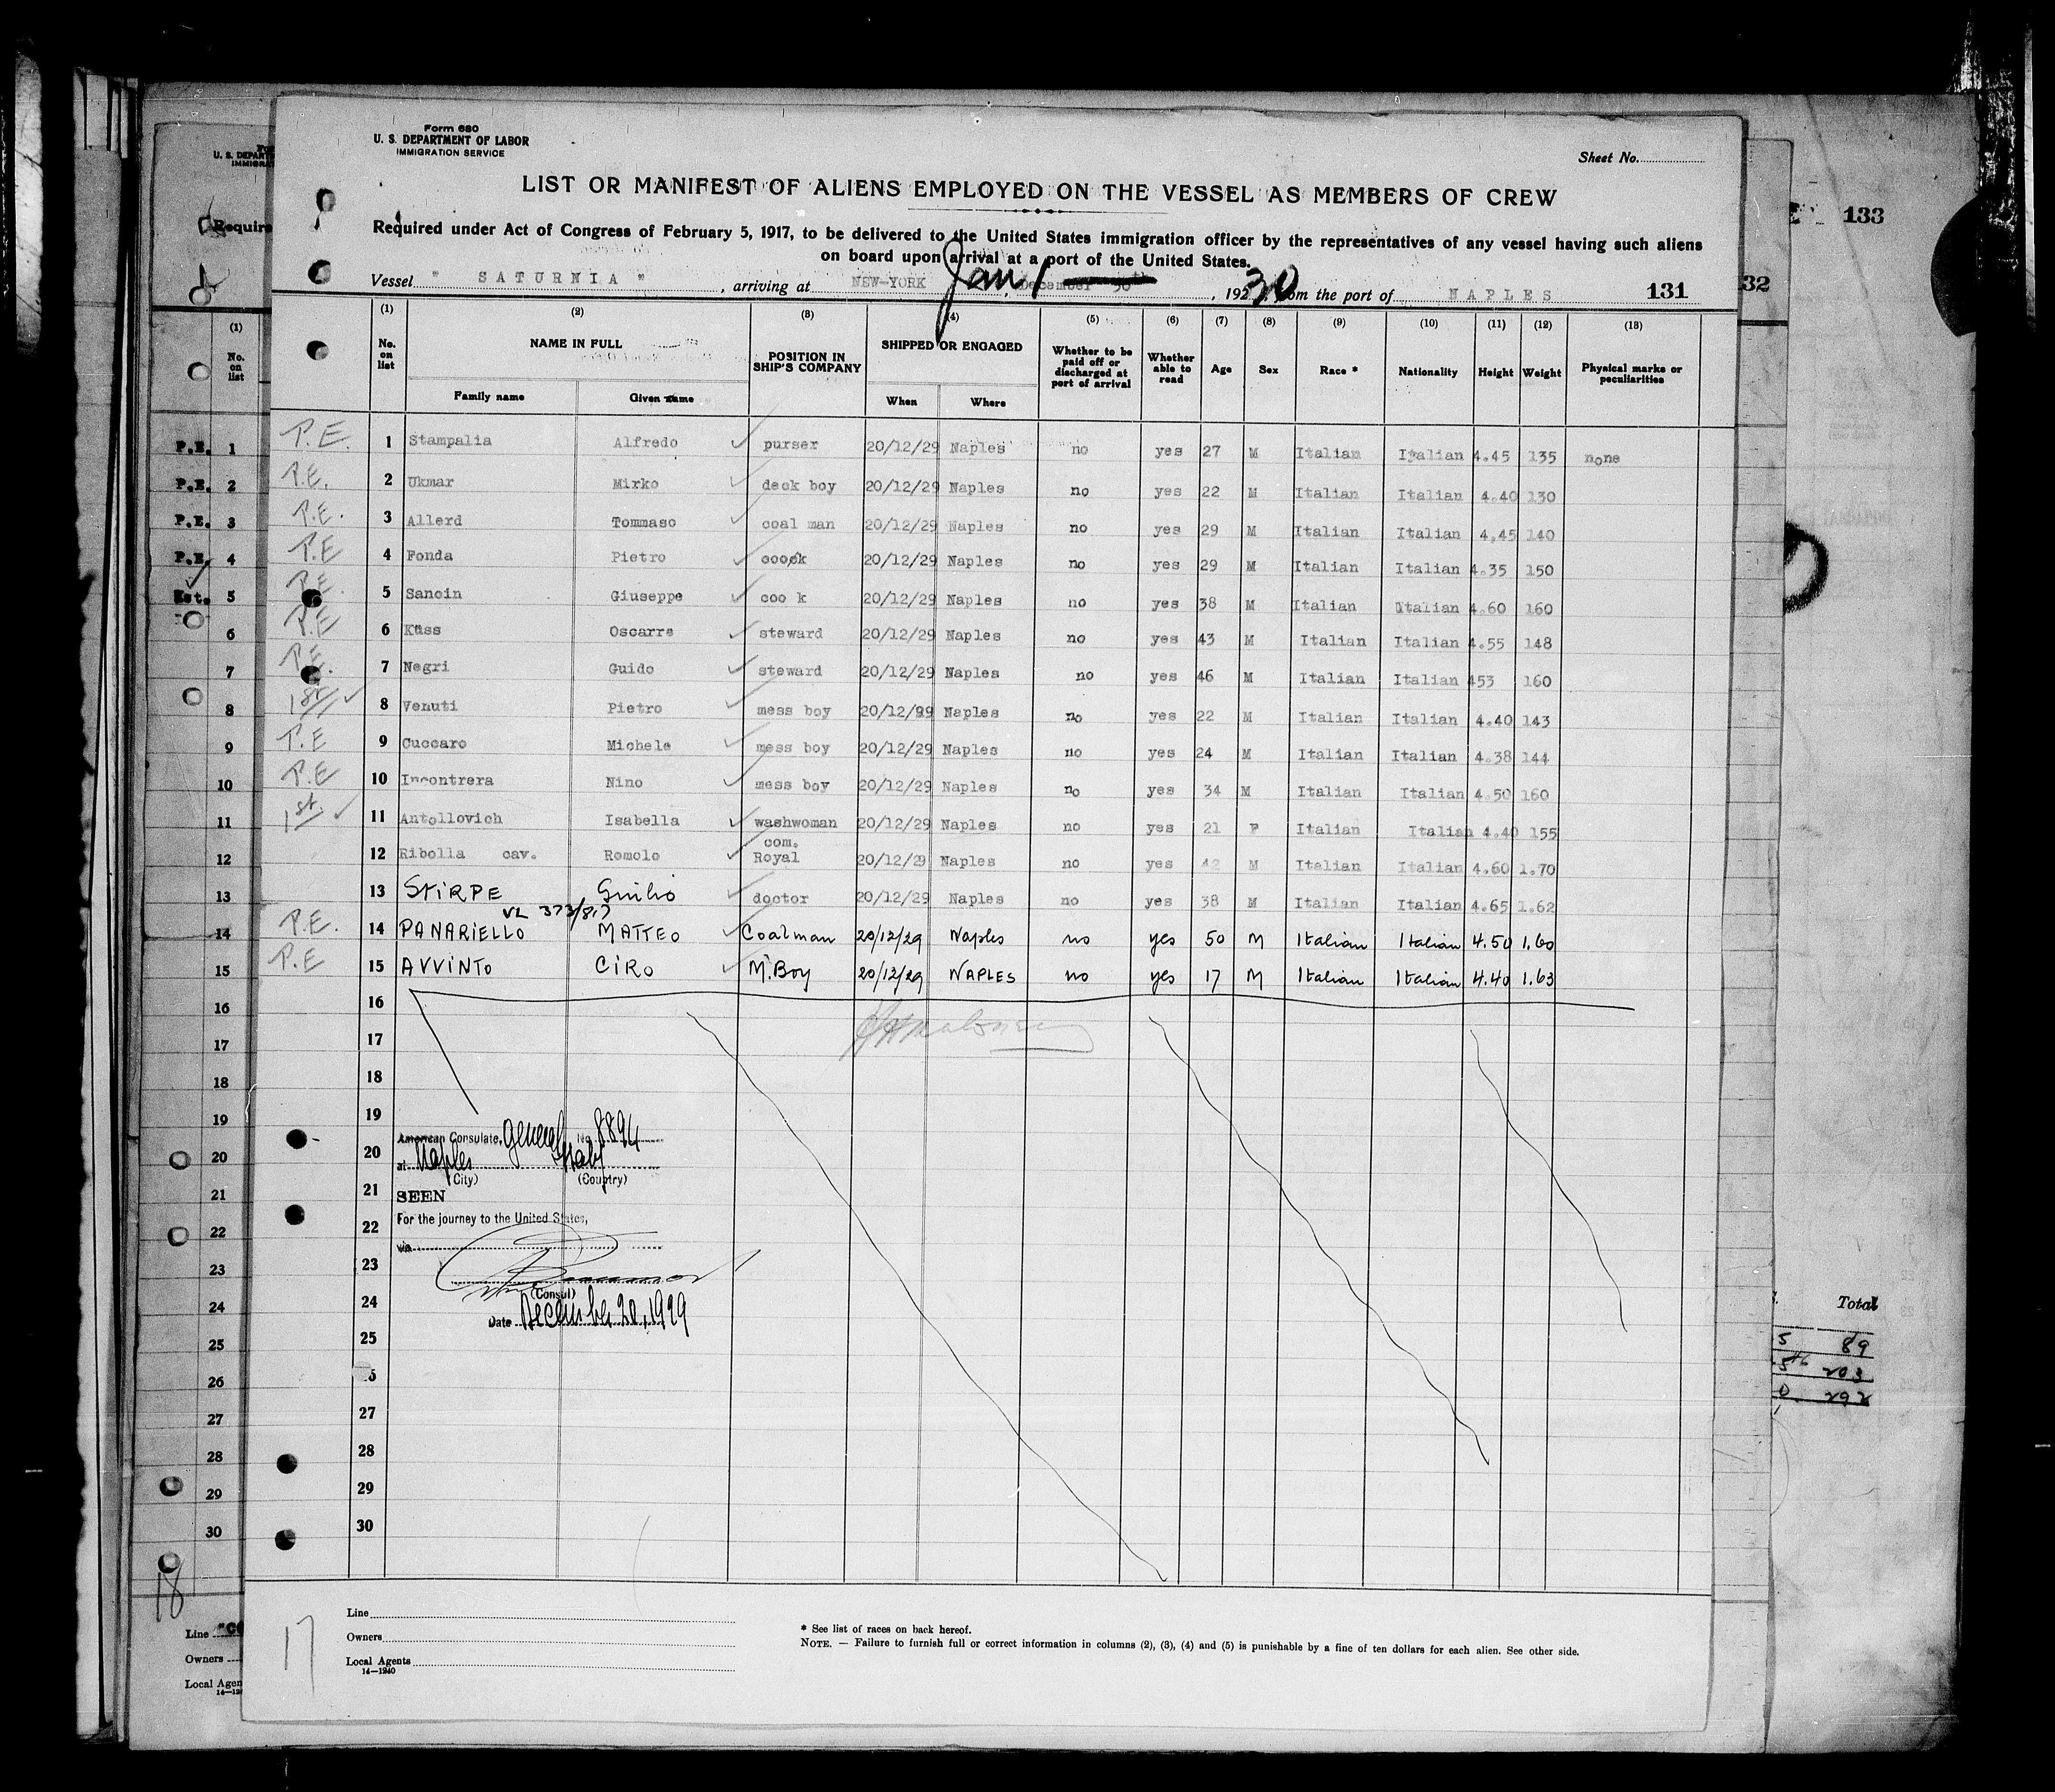 Form 680
U. S. DEPARTMENT OF LABOR
IMMIGRATION SERVICE
Sheet No.
LIST OR MANIFEST OF ALIENS EMPLOYED ON THE VESSEL AS MEMBERS OF CREW
Required under Act of Congress of February 5, 1917, to be delivered to the United States immigration officer by the representatives of any vessel having such aliens
on board upon arrival at a port of the United States.
Vessel " SATURNIA " , arriving at NEW-YORK Jan 1 December 30th , 1930 from the port of NAPLES 131
(1) (2) (3) (4) (5) (6) (7) (8) (9) (10) (11) (12) (13)
No. on list NAME IN FULL POSITION IN SHIP'S COMPANY SHIPPED OR ENGAGED Whether to be paid off or discharged at port of arrival Whether able to read Age Sex Race * Nationality Height Weight Physical marks or peculiarities
Family name Given name When Where
P.E. 1 Stampalia Alfredo ✓ purser 20/12/29 Naples no yes 27 M Italian Italian 4.45 135 none
P.E. 2 Ukmar Mirko ✓ deck boy 20/12/29 Naples no yes 22 M Italian Italian 4.40 130
P.E. 3 Allerd Tommaso ✓ coal man 20/12/29 Naples no yes 29 M Italian Italian 4.45 140
P.E 4 Fonda Pietro ✓ coook 20/12/29 Naples no yes 29 M Italian Italian 4.35 150
P.E. 5 Sancin Giuseppe ✓ coo k 20/12/29 Naples no yes 38 M Italian Italian 4.60 160
P.E 6 Küss Oscarre ✓ steward 20/12/29 Naples no yes 43 M Italian Italian 4.55 148
P.E. 7 Negri Guido ✓ steward 20/12/29 Naples no yes 46 M Italian Italian 453 160
1st ✓ 8 Venuti Pietro ✓ mess boy 20/12/29 Naples no yes 22 M Italian Italian 4.40 143
P.E 9 Cuccaro Michele ✓ mess boy 20/12/29 Naples no yes 24 M Italian Italian 4.38 144
P.E 10 Incontrera Nino ✓ mess boy 20/12/29 Naples no yes 34 M Italian Italian 4.50 160
1st. ✓ 11 Antollovich Isabella ✓ washwoman 20/12/29 Naples no yes 21 F Italian Italian 4.40 155
12 Ribolla cav. Romolo ✓ com. Royal 20/12/29 Naples no yes 42 M Italian Italian 4.60 1.70
13 STIRPE Giulio ✓ doctor 20/12/29 Naples no yes 38 M Italian Italian 4.65 1.62
VL 373/817
P.E. 14 PANARIELLO MATTEO ✓ Coalman 20/12/29 Naples no yes 50 M Italian Italian 4.50 1.60
P.E 15 AVVINTO CIRO ✓ M. Boy 20/12/29 NAPLES no yes 17 M Italian Italian 4.40 1.63
16
17
18
19
American Consulate, General No. 8894
20
at Naples Italy
(City) (Country)
21
SEEN
For the journey to the United States,
22
via
23
(Consul)
24
Date December 20, 1929
25
27
28
29
30
17
Line
Owners
Local Agents
14—1240
* See list of races on back hereof.
NOTE. — Failure to furnish full or correct information in columns (2), (3), (4) and (5) is punishable by a fine of ten dollars for each alien. See other side.
U. S. DEPART
Require
(1)
No. on list
P.E. 1
P.E. 2
P.E. 3
P.E. 4
5
6
7
8
9
10
11
12
13
14
15
16
17
18
19
20
21
22
23
24
25
26
27
28
29
30
18
Line "CO
Owners
Local Agen
133
32
Total
5 89
203
0 292